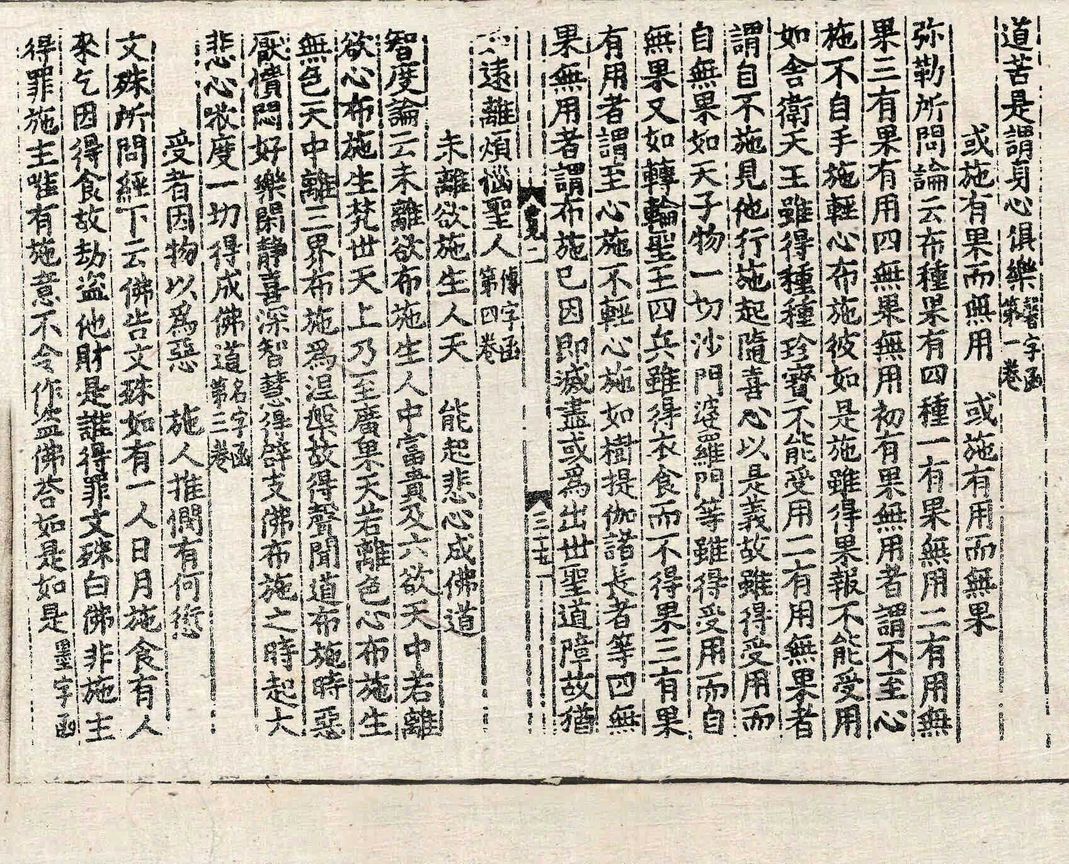 道苦是謂身心俱樂馨字函第一卷
或施有果而無用　或施有用而無果
弥勒所問論云布種果有四種一有果無用二有用無
果三有果有用四無果無用初有果無用者謂不至心
施不自手施輕心布施彼如是施雖得果報不能受用
如舍衛天王雖得種種珍寶不能受用二有用無果者
謂自不施見他行施起隨喜心以是義故雖得受用而
自無果如天子物一切沙門婆羅門等雖得受用而自
無果又如轉輪聖王四兵雖得衣食而不得果三有果
有用者謂至心施不輕心施如樹提伽諸長者等四無
果無用者謂布施已因即滅盡或為出世聖道障故猶
遠離煩惱聖人傳字函第四卷
未離欲施生人天　能起悲心成佛道
智度論云未離欲布施生人中富貴及六欲天中若離
欲心布施生梵世天上乃至廣果天若離色心布施生
無色天中離三界布施為涅槃故得聲聞道布施時惡
厭憒閙好樂閑静喜深智慧得辟支佛布施之時起大
悲心救度一切得成佛道名字函第三卷
受者因物以為惡　施人推憫有何愆
文殊所問經下云佛告文殊如有一人日月施食有人
來乞因得食故劫盜他財是誰得罪文殊白佛非施主
得罪施主唯有施意不令作盜佛荅如是如是墨字函